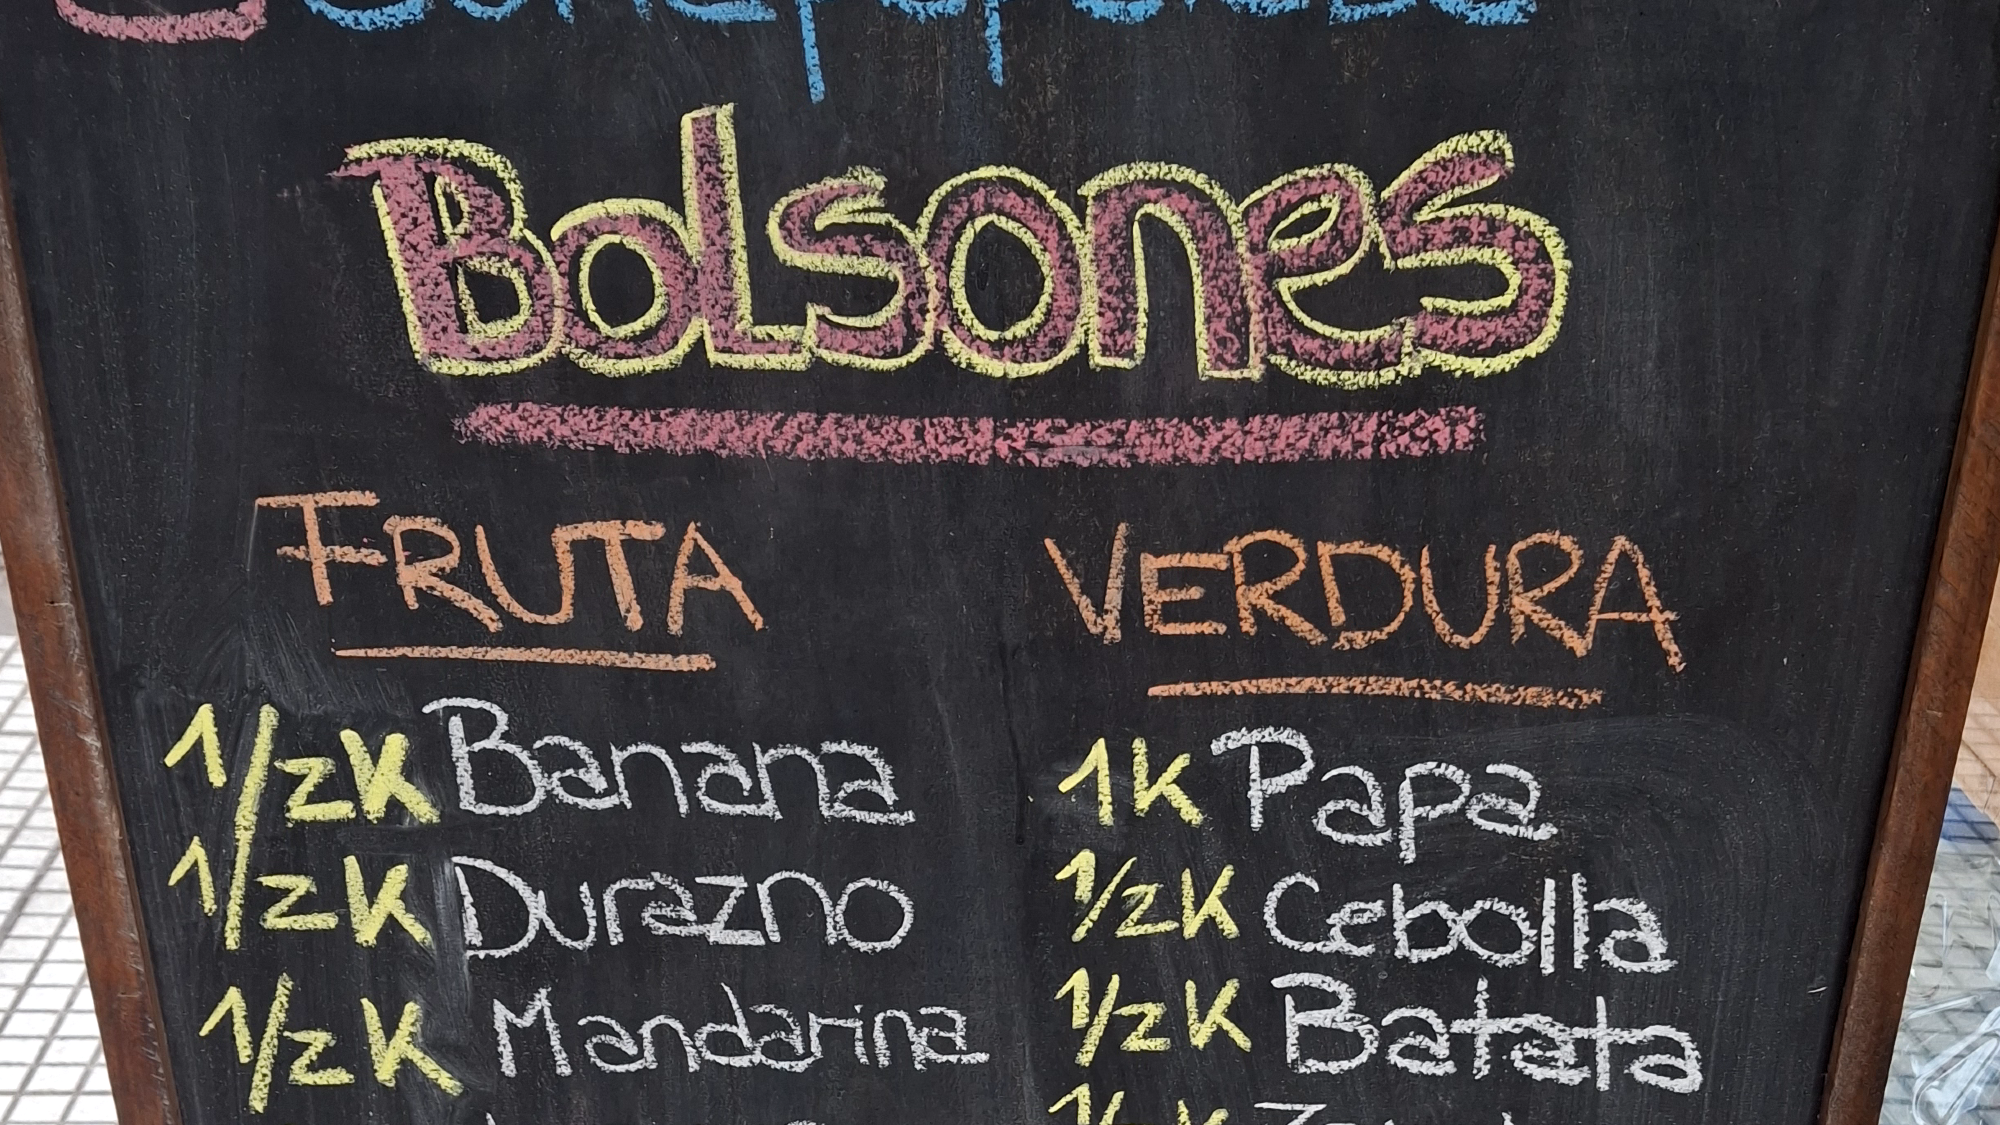 Bolsones
FRUTA
1/2K Banana
1/2K Durazno
1/2K Mandarina
VERDURA
1K Papa
1/2K Cebolla
1/2K Batata